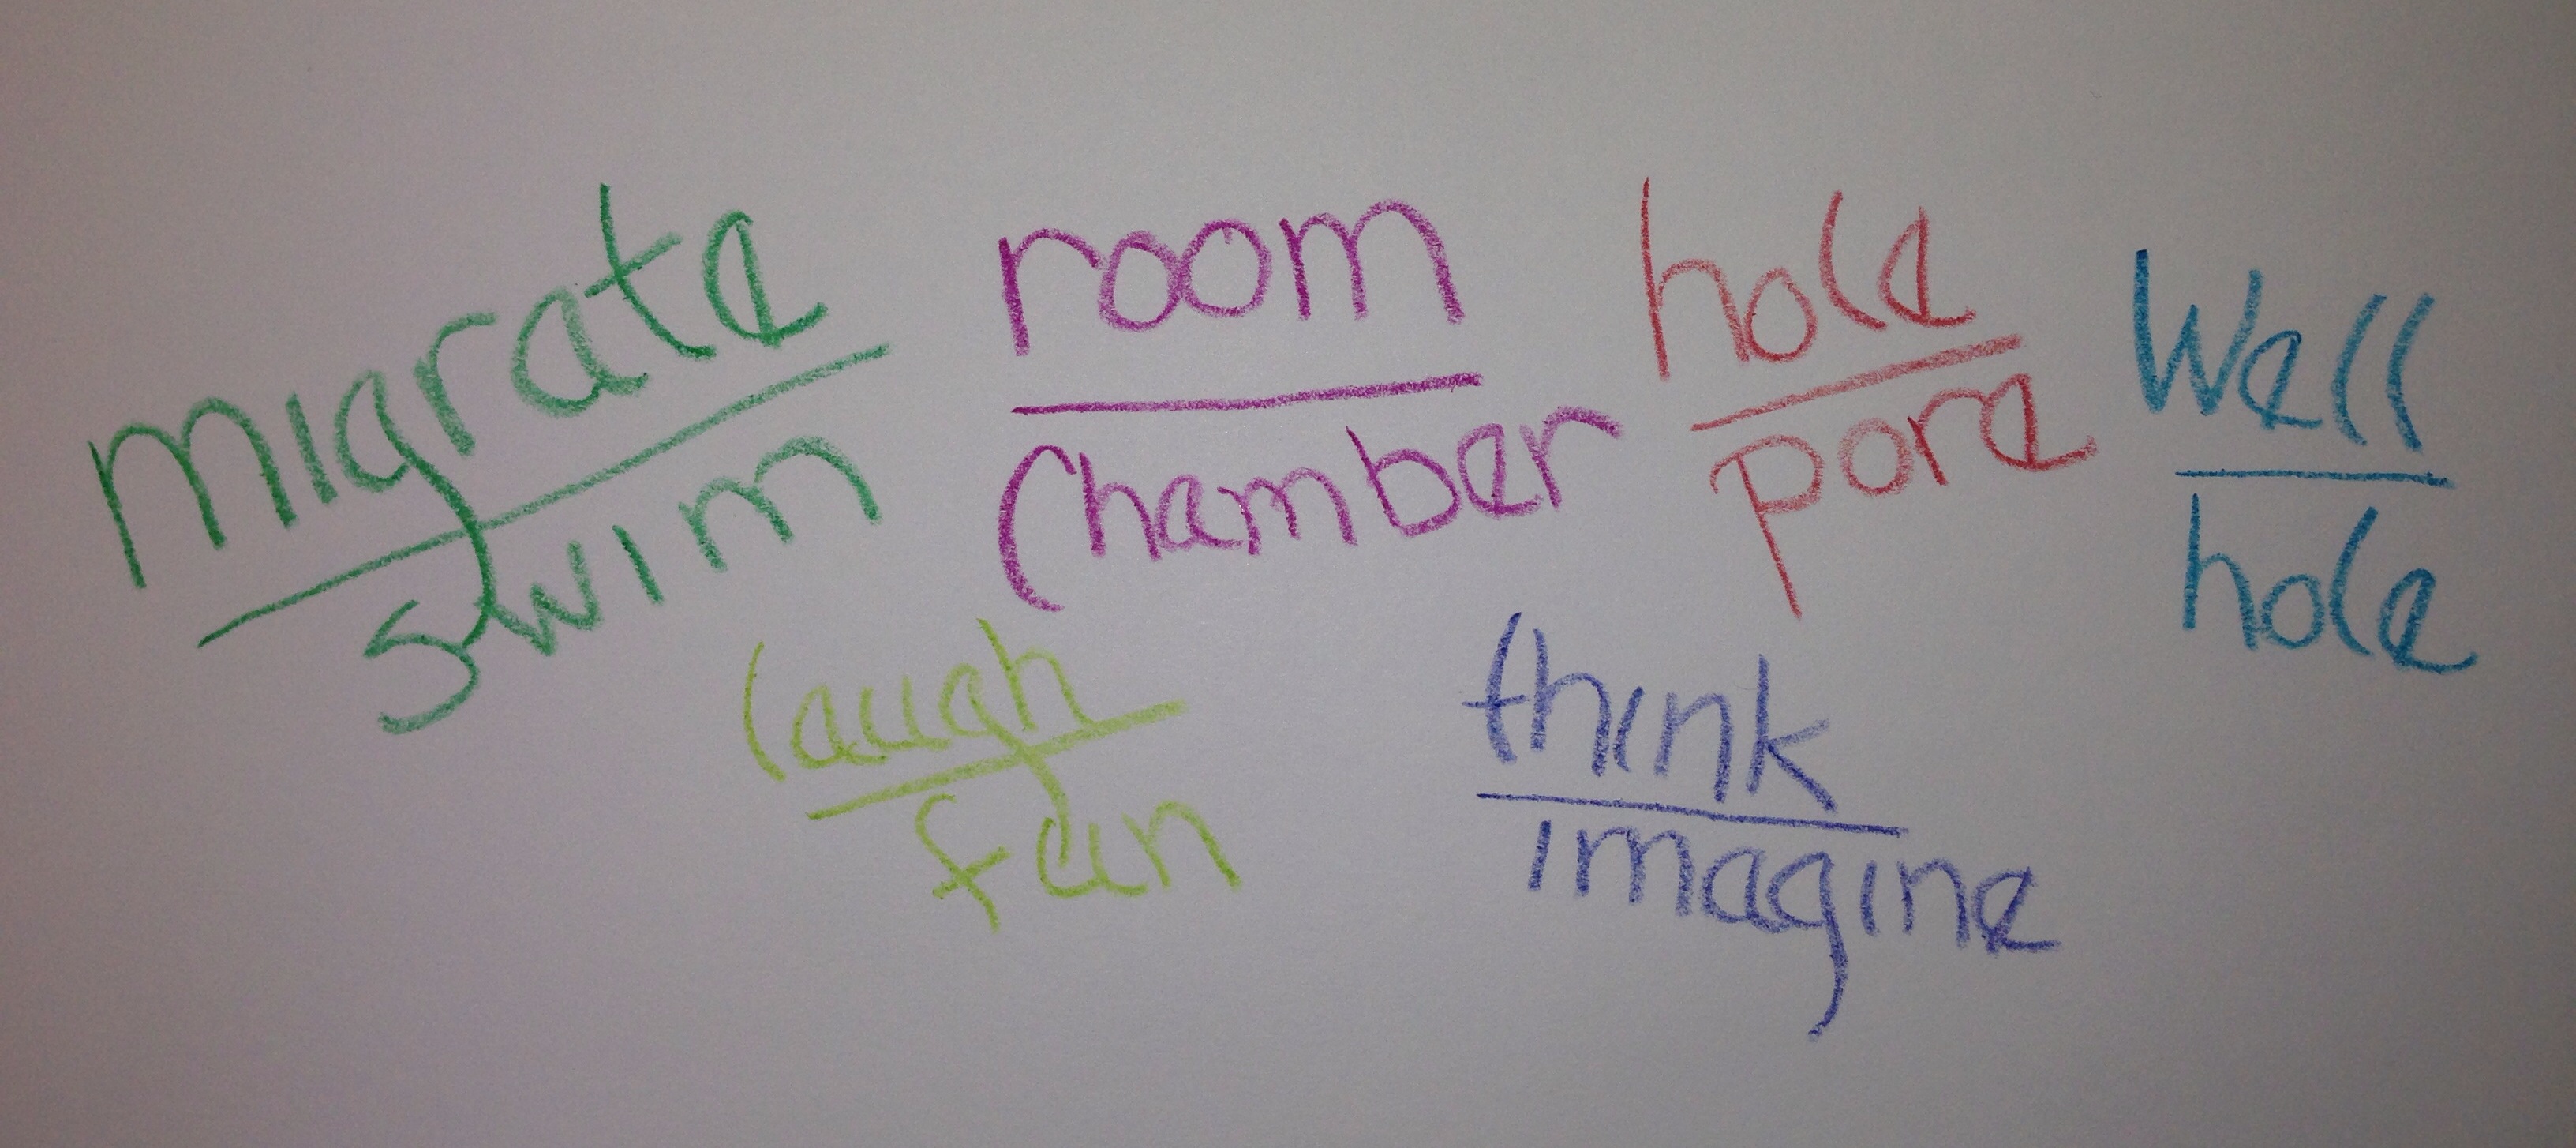 migrate
swim
room
chamber
hole
pore
Well
hole
laugh
fun
think
imagine